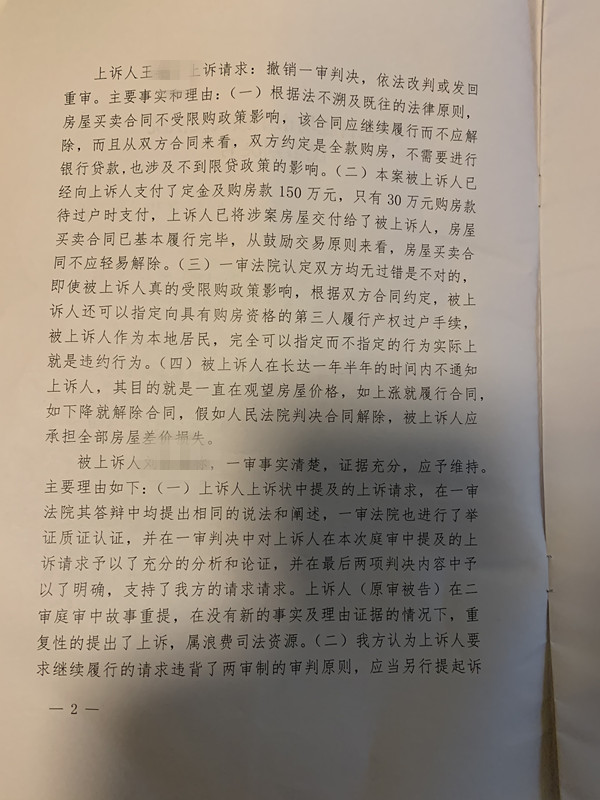 上诉人王 上诉请求：撤销一审判决，依法改判或发回
重审。主要事实和理由：（一）根据法不溯及既往的法律原则，
房屋买卖合同不受限购政策影响，该合同应继续履行而不应解
除，而且从双方合同来看，双方约定是全款购房，不需要进行
银行贷款，也涉及不到限贷政策的影响。（二）本案被上诉人已
经向上诉人支付了定金及购房款 150 万元，只有 30 万元购房款
待过户时支付，上诉人已将涉案房屋交付给了被上诉人，房屋
买卖合同已基本履行完毕，从鼓励交易原则来看，房屋买卖合
同不应轻易解除。（三）一审法院认定双方均无过错是不对的，
即使被上诉人真的受限购政策影响，根据双方合同约定，被上
诉人还可以指定向具有购房资格的第三人履行产权过户手续，
被上诉人作为本地居民，完全可以指定而不指定的行为实际上
就是违约行为。（四）被上诉人在长达一年半的时间内不通知
上诉人，其目的就是一直在观望房屋价格，如上涨就履行合同，
如下降就解除合同，假如人民法院判决合同解除，被上诉人应
承担全部房屋差价损失。
被上诉人 ，一审事实清楚，证据充分，应予维持。
主要理由如下：（一）上诉人上诉状中提及的上诉请求，在一审
法院其答辩中均提出相同的说法和阐述，一审法院也进行了举
证质证认证，并在一审判决中对上诉人在本次庭审中提及的上
诉请求予以了充分的分析和论证，并在最后两项判决内容中予
以了明确，支持了我方的请求请求。上诉人（原审被告）在二
审庭审中故事重提，在没有新的事实及理由证据的情况下，重
复性的提出了上诉，属浪费司法资源。（二）我方认为上诉人要
求继续履行的请求违背了两审制的审判原则，应当另行提起诉
— 2 —